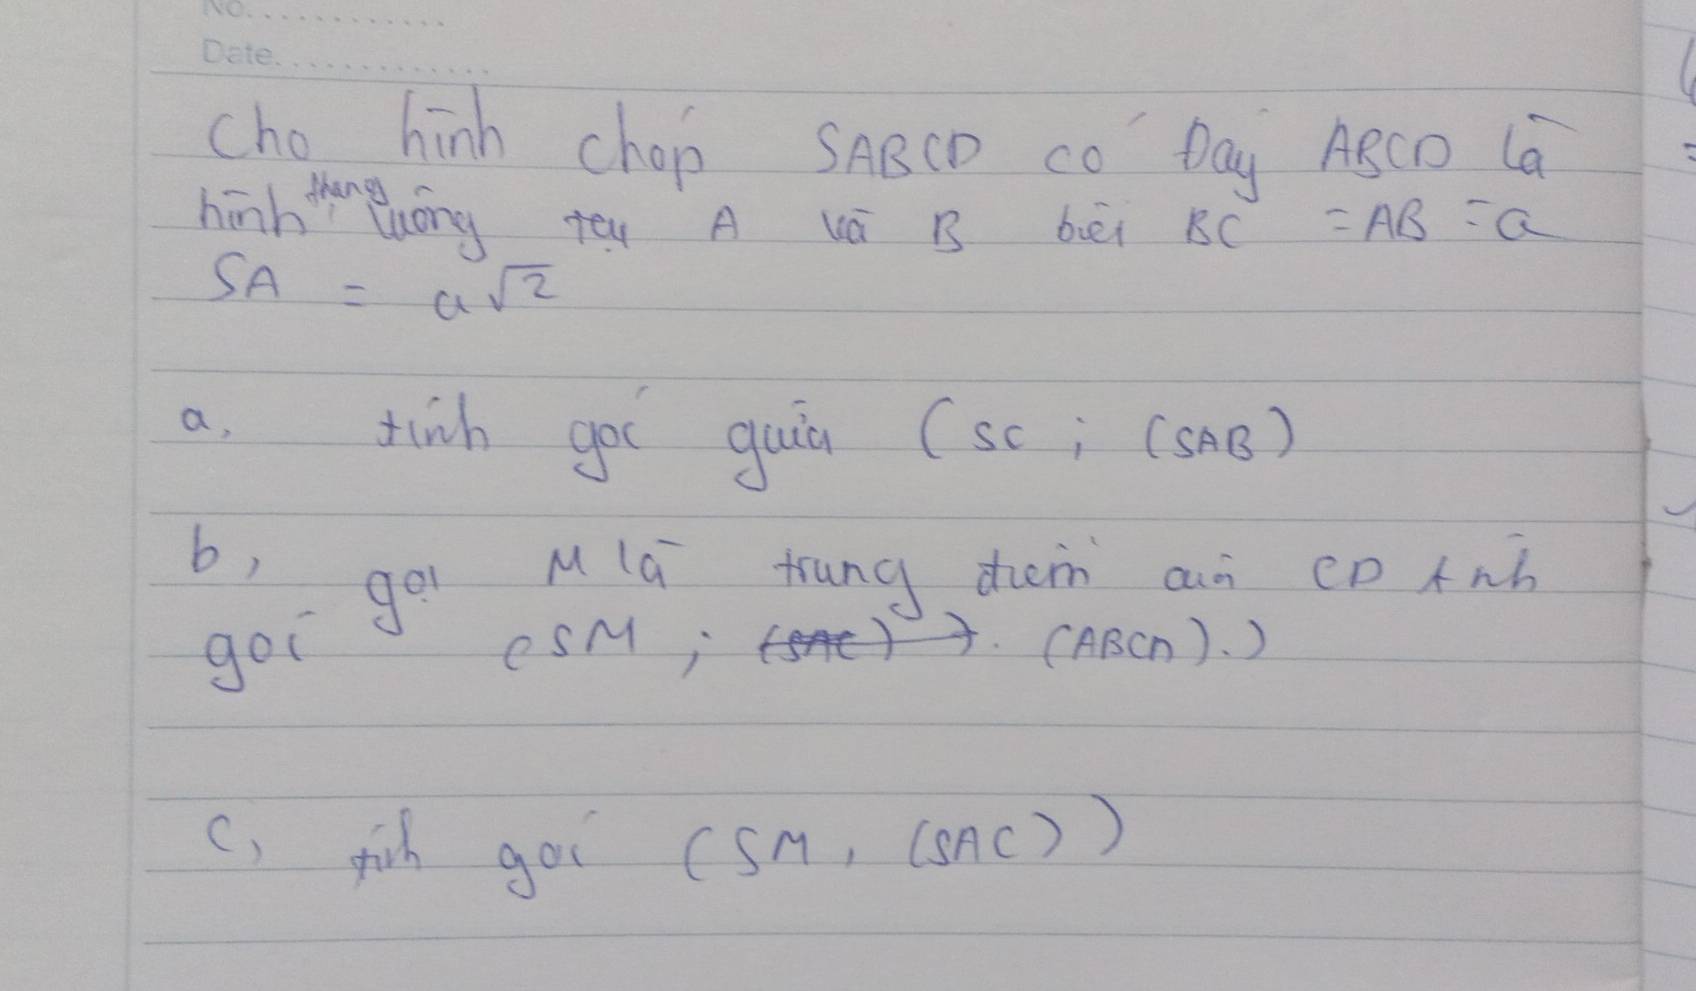 No.............
Date..............
Cho hình chóp SABCD có Đáy ABCD là
hình thang vuông tại A và B biết BC = AB = a
SA = a√2
a, tính góc giữa (SC ; (SAB)
b, gọi M là trung điểm của CD tính
góc (SM ; (SAC)). (ABCD).)
c, tính góc (SM, (SAC))